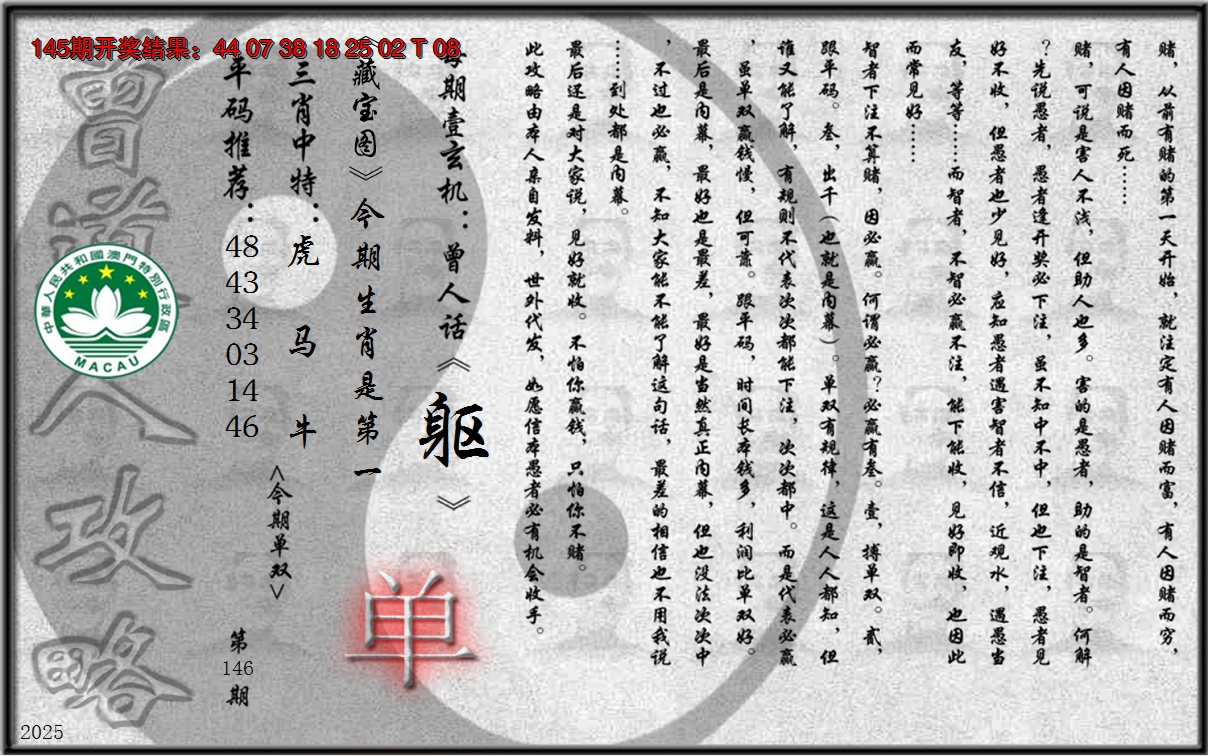 145期开奖结果：44 07 38 18 25 02 T 08
赌，从前有赌的第一天开始，就注定有人因赌而富，有人因赌而穷，
有人因赌而死……
赌，可说是害人不浅，但助人也多。害的是愚者，助的是智者。何解
？先说愚者，愚者逢开奖必下注，虽不知中不中，但也下注，愚者见
好不收，但愚者也少见好，应知愚者遇害智者不信，近观水，遇愚当
友，等等……而智者，不智必赢不注，能下能收，见好即收，也因此
而常见好……
智者下注不算赌，因必赢。何谓必赢？必赢有叁。壹，搏单双。贰，
跟平码。叁，出千（也就是内幕）。单双有规律，这是人人都知，但
谁又能了解，有规则不代表次次都能下注，次次都中。而是代表必赢
，虽单双赢钱慢，但可靠。跟平码，时间长本钱多，利润比单双好。
最后是内幕，最好也是最差，最好是当然真正内幕，但也没法次次中
，不过也必赢，不知大家能不能了解这句话，最差的相信也不用我说
……到处都是内幕。
最后还是对大家说，见好就收。不怕你赢钱，只怕你不赌。
此攻略由本人亲自发料，世外代发，如愿信本愚者必有机会收手。
每期壹玄机：曾人话《躯》
《藏宝图》今期生肖是第一
单
三肖中特：虎 马 牛
<今期单双>
平码推荐：48 43 34 03 14 46
第146期
曾道人攻略
中華人民共和國澳門特別行政區
MACAU
2025